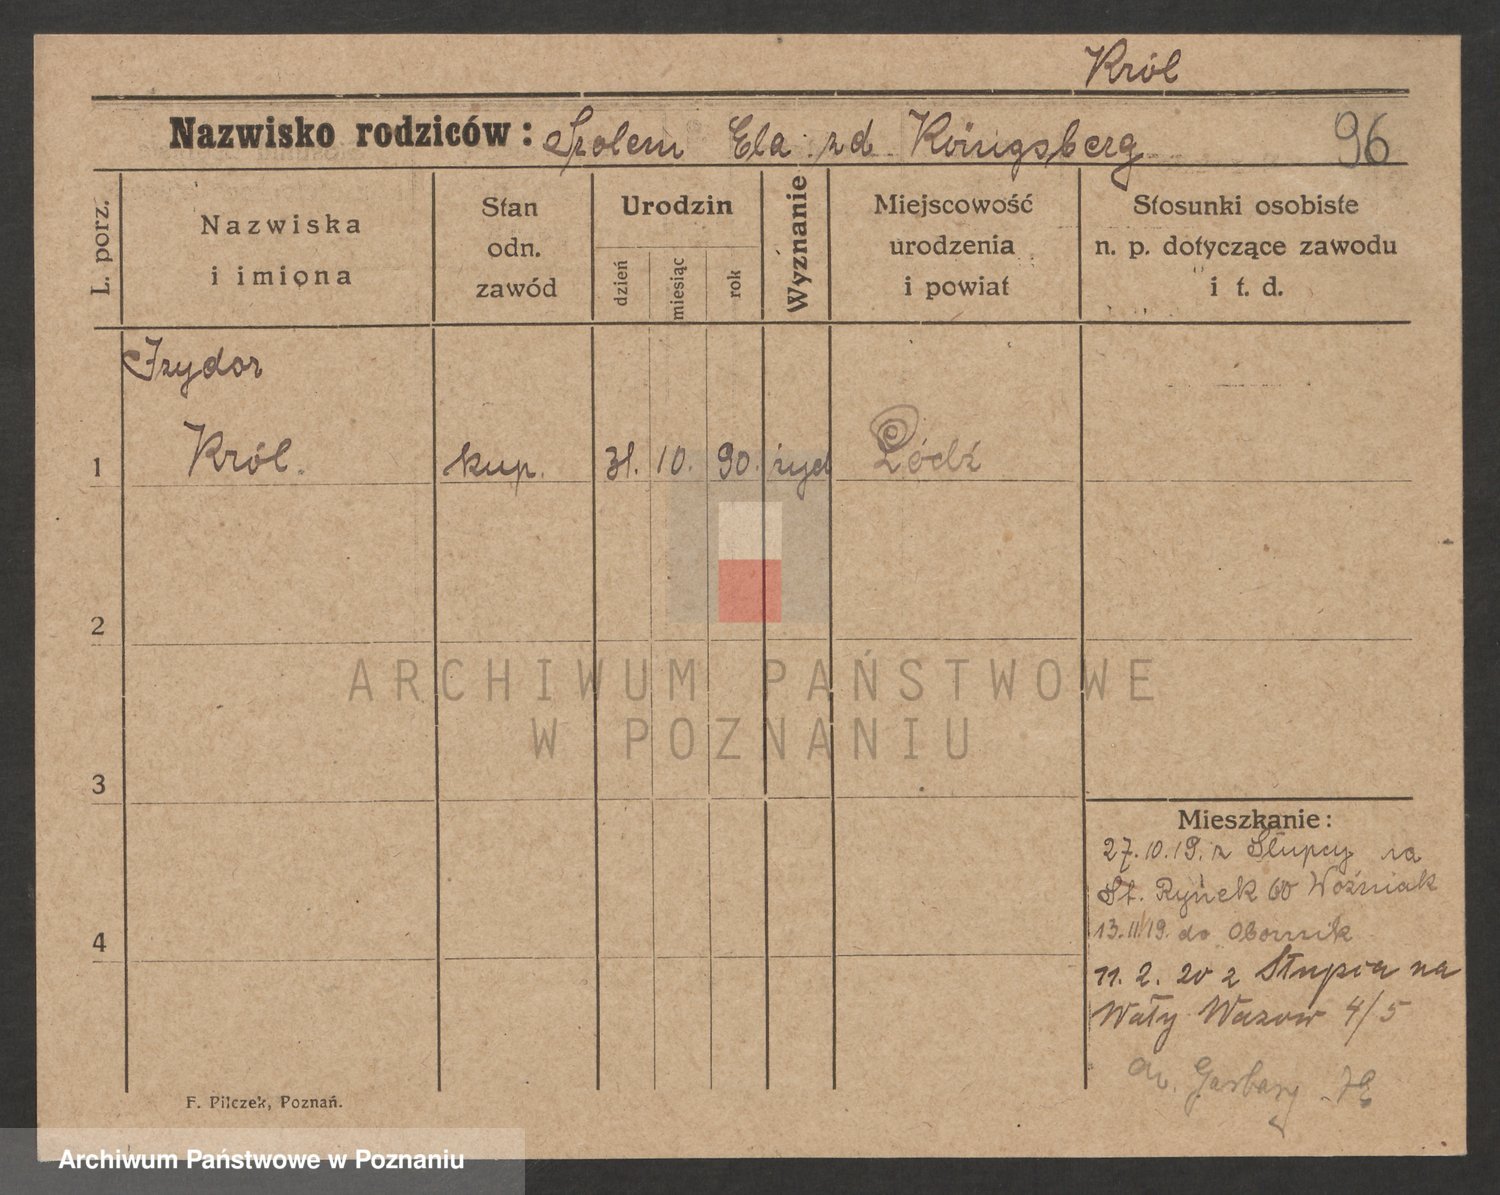 Król
Nazwisko rodziców: Szolem Ela zd Königsberg 96
L. porz.
Nazwiska
i imiona
Stan
odn.
zawód
Urodzin
dzień
miesiąc
rok
Wyznanie
Miejscowość
urodzenia
i powiat
Stosunki osobiste
n. p. dotyczące zawodu
i t. d.
Izydor
1 Król. kup. 31. 10. 90. żyd Łódź
2
3
4
Mieszkanie:
27.10.19. z Słupcy na
St. Rynek 60 Woźniak
13.11/19. do Obornik
11. 2. 20 z Słupca na
Wały Wazow 4/5
Garbary
F. Pilczek, Poznań.
ARCHIWUM PAŃSTWOWE
W POZNANIU
Archiwum Państwowe w Poznaniu